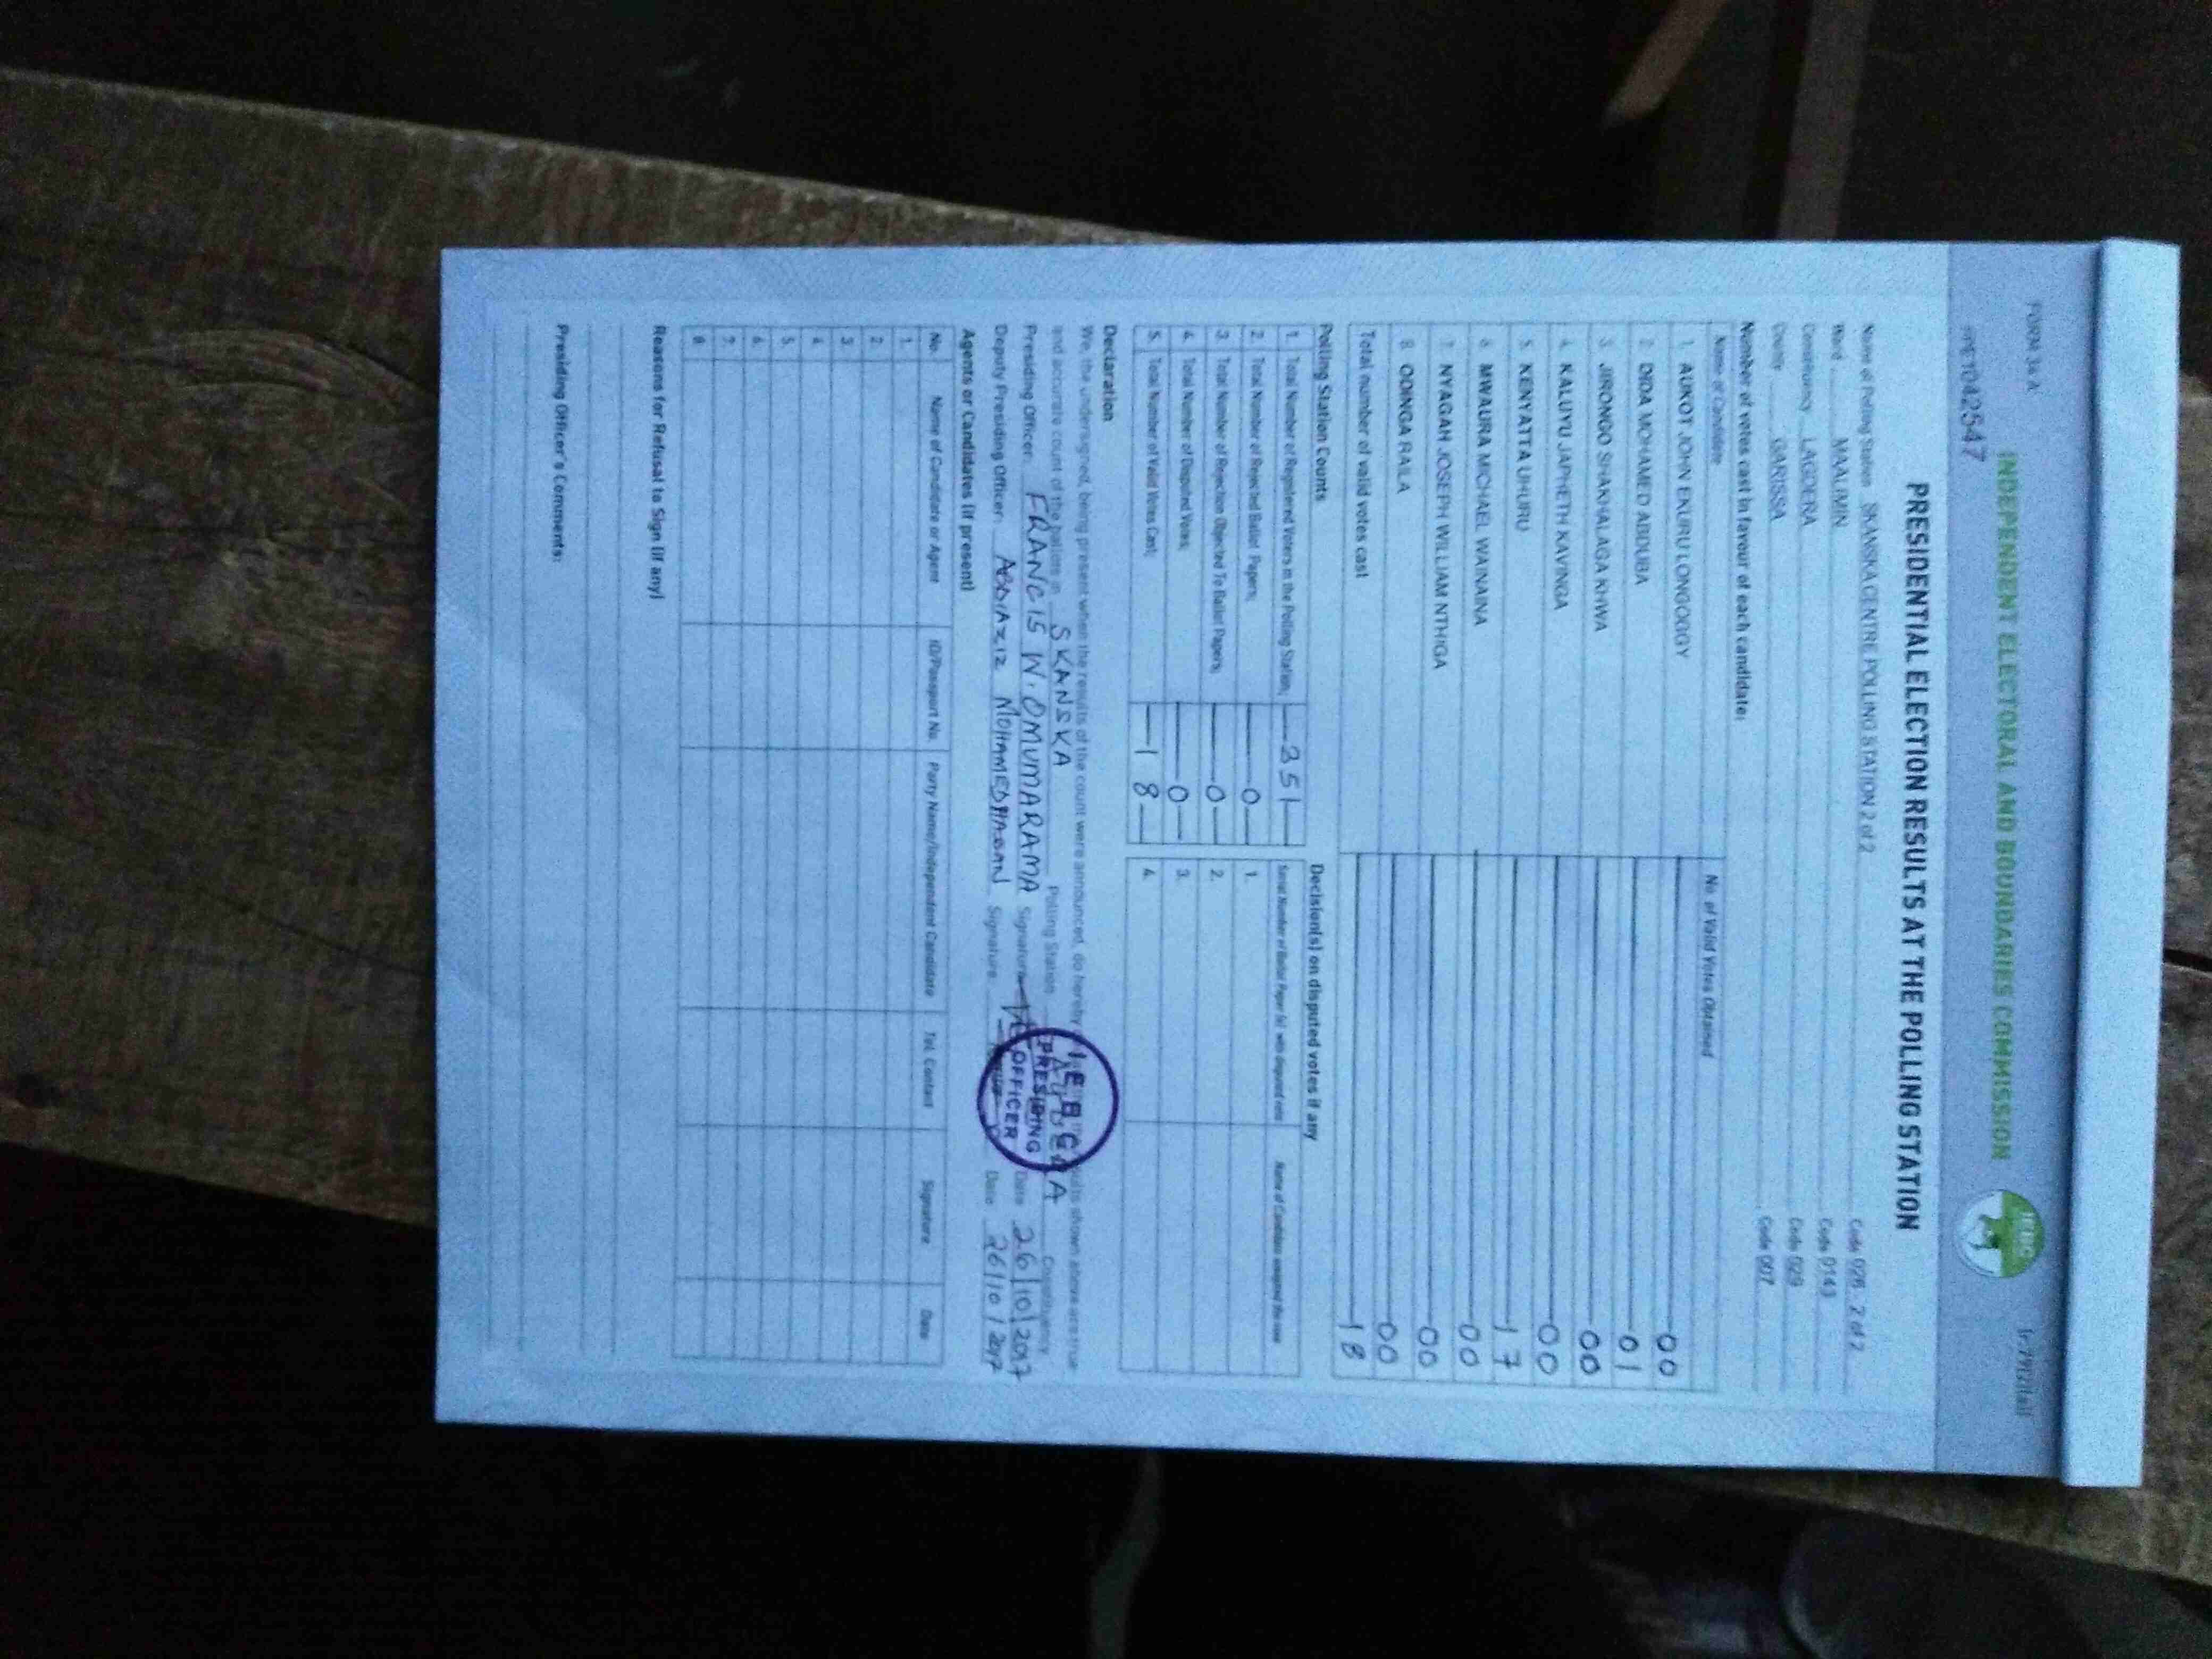 FORM 34 A
INDEPENDENT ELECTORAL AND BOUNDARIES COMMISSION
IEBC
1042547
PRESIDENTIAL ELECTION RESULTS AT THE POLLING STATION
Name of Polling Station SKANSKA CENTRE POLLING STATION 2 of 2 Code 028 2 of 2
Ward MAALIMIN Code 0143
Constituency LAGDERA Code 029
County GARISSA Code 007
Number of votes cast in favour of each candidate:
Name of Candidate No. of Valid Votes Obtained
1. AUKOT JOHN EKURU LONGOGGY 00
2. DIDA MOHAMED ABDUBA 01
3. JIRONGO SHAKHALAGA KHWA 00
4. KALUYU JAPHETH KAVINGA 00
5. KENYATTA UHURU 17
6. MWAURA MICHAEL WAINAINA 00
7. NYAGAH JOSEPH WILLIAM NTHIGA 00
8. ODINGA RAILA 00
Total number of valid votes cast 18
Polling Station Counts Decision(s) on disputed votes if any
1. Total Number of Registered Voters in the Polling Station; 351
2. Total Number of Rejected Ballot Papers; 0 1.
3. Total Number of Rejection Objected To Ballot Papers; 0 2.
4. Total Number of Disputed Votes; 0 3.
5. Total Number of Valid Votes Cast; 18 4.
Declaration
We, the undersigned, being present when the results of the count were announced, do hereby shown above are true
and accurate count of the ballots in SKANSKA Polling Station LAGDERA Constituency
Presiding Officer: FRANCIS W. OMUMARAMA Signature Date 26/10/2017
Deputy Presiding Officer: ABDIAZIZ MOHAMED Signature Date 26/10/2017
IEBC
PRESIDING
OFFICER
Agents or Candidates (if present)
No. Name of Candidate or Agent ID/Passport No. Party Name/Independent Candidate Tel. Contact Signature Date
1.
2.
3.
4.
5.
6.
7.
8.
Reasons for Refusal to Sign (if any)
Presiding Officer's Comments: